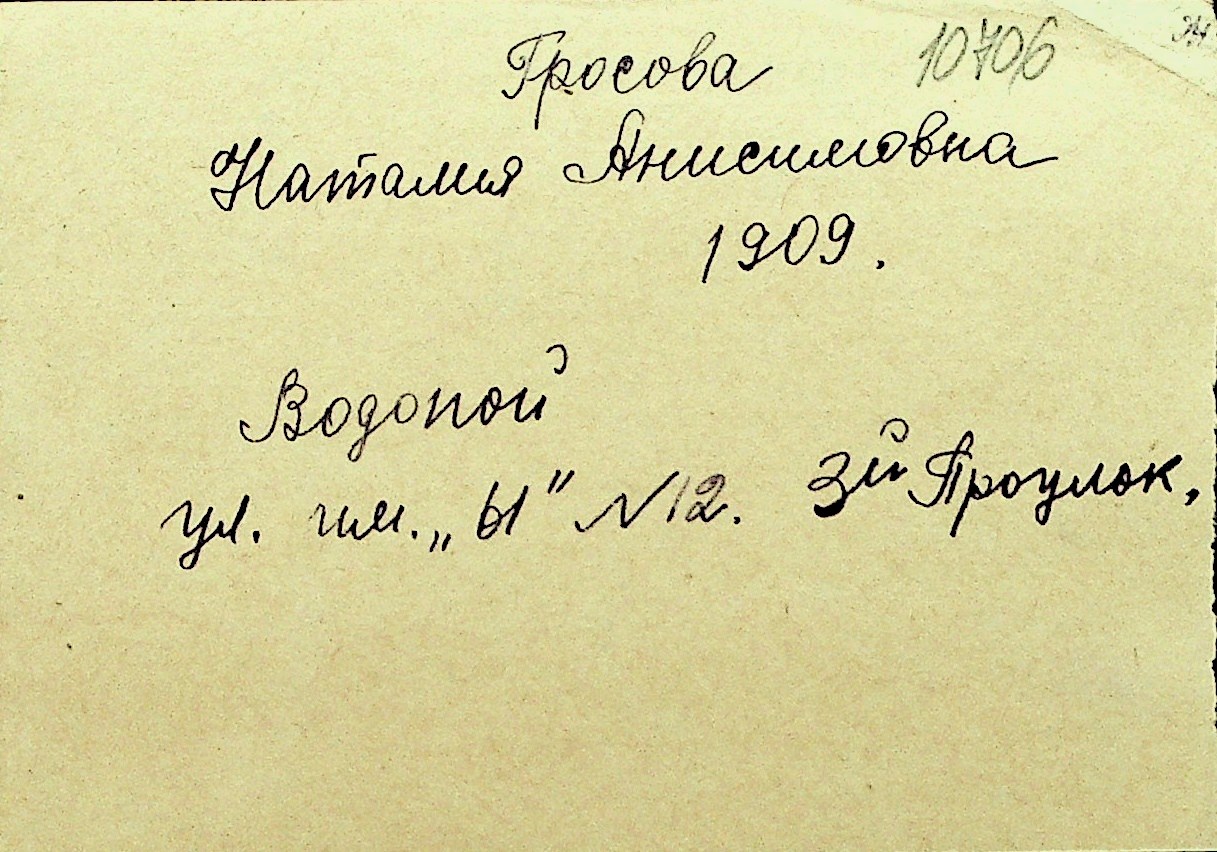 10706
Гросова
Наталия Анисимовна
1909.
Водопой
ул. им. „Ы" №12. 3й Проулок,